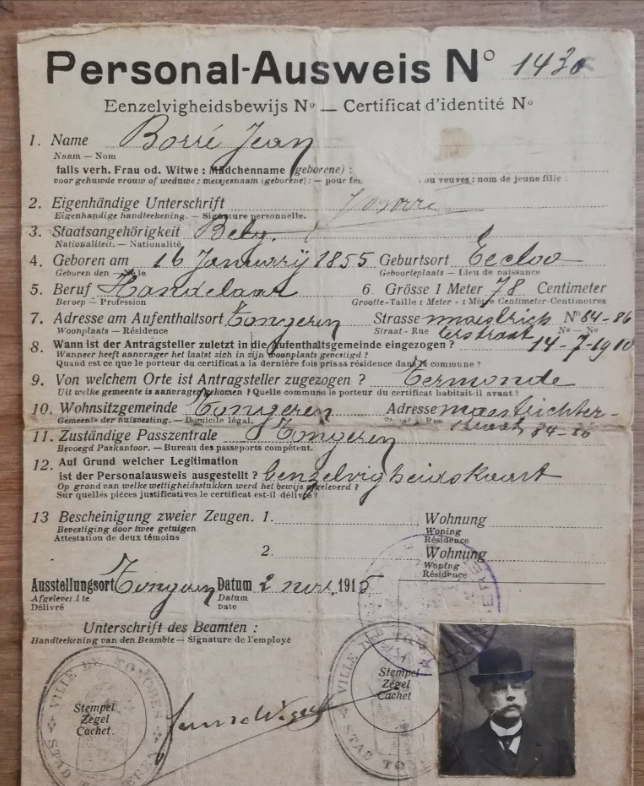 Personal-Ausweis No 1430
Eenzelvigheidsbewijs No — Certificat d'identité No
1. Name Borré Jean
Naam — Nom
falls verh. Frau od. Witwe : Mädchenname (geborene) :
voor gehuwde vrouw of weduwe : meisjesnaam (geborene) : — pour fe ou veuves : nom de jeune fille :
2. Eigenhändige Unterschrift J Borré
Eigenhandige handteekening. — Signature personnelle.
3. Staatsangehörigkeit Belg.
Nationaliteit. — Nationalité
4. Geboren am 16 Januarij 1855 Geburtsort Eecloo
Geboren den — Né le Geboorteplaats — Lieu de naissance
5. Beruf Handelaar 6. Grösse 1 Meter 78 Centimeter
Beroep — Profession Grootte-Taille 1 Meter - 1 Mètre Centimeter-Centimètres
7. Adresse am Aufenthaltsort Tongeren Strasse maestrich No 84-86
Woonplaats — Résidence Straat - Rue terstraat No — No
8. Wann ist der Antragsteller zuletzt in die Aufenthaltsgemeinde eingezogen ? 14-7-1910
Wanneer heeft aanvrager het laatst zich in zijn woonplaats gevestigd ?
Quand est ce que le porteur du certificat a la dernière fois pris sa résidence dans la commune ?
9. Von welchem Orte ist Antragsteller zugezogen ? Termonde
Uit welke gemeente is aanvrager gekomen ? Quelle commune le porteur du certificat habitait-il avant ?
10. Wohnsitzgemeinde Tongeren Adresse maestrichter-
Gemeente der huisvesting. — Domicile légal. straat 84-86
11. Zuständige Passzentrale Tongeren
Bevoegd Paskantoor. — Bureau des passeports compétent.
12. Auf Grund welcher Legitimation
ist der Personalausweis ausgestellt ? Eenzelvigheidskaart
Op grond van welke wettigheidsstukken werd het bewijs afgeleverd ?
Sur quelles pièces justificatives le certificat est-il délivré ?
13 Bescheinigung zweier Zeugen. 1. Wohnung
Bevestiging door twee getuigen Woning
Attestation de deux témoins Résidence
2. Wohnung
Woning
Résidence
Ausstellungsort Tongeren Datum 2 nov. 1915
Afgeleverd te Datum
Délivré Date
Unterschrift des Beamten :
Handteekening van den Beambte — Signature de l'employé
VILLE DE TONGRES
STAD TONGEREN
Stempel
Zegel
Cachet.
VILLE DE TON
STAD TON
Stempel
Zegel
Cachet